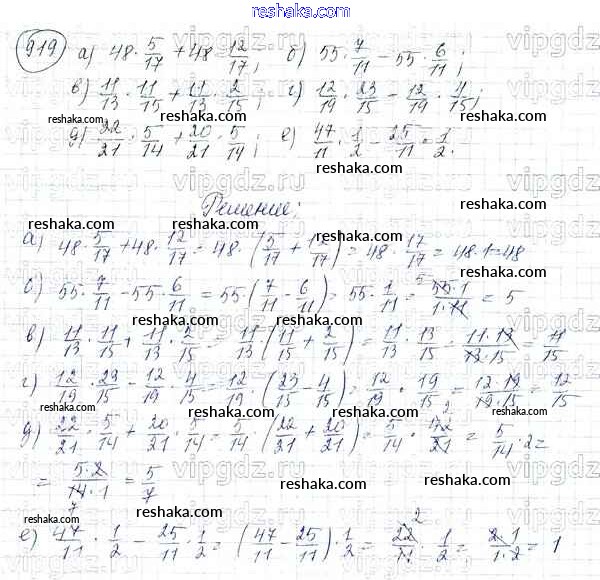 919) а) 48·5/17 + 48·12/17; б) 55·7/11 − 55·6/11;
в) 11/13·11/15 + 11/13·2/15; г) 12/19·23/15 − 12/19·4/15;
д) 22/21·5/14 + 20/21·5/14; е) 47/11·1/2 − 25/11·1/2.
Решение:
а) 48·5/17 + 48·12/17 = 48·(5/17 + 12/17) = 48·17/17 = 48·1 = 48
б) 55·7/11 − 55·6/11 = 55·(7/11 − 6/11) = 55·1/11 = 55·1/1·11 = 5
в) 11/13·11/15 + 11/13·2/15 = 11/13(11/15 + 2/15) = 11/13·13/15 = 11·13/13·15 = 11/15
г) 12/19·23/15 − 12/19·4/15 = 12/19(23/15 − 4/15) = 12/19·19/15 = 12·19/19·15 = 12/15
д) 22/21·5/14 + 20/21·5/14 = 5/14·(22/21 + 20/21) = 5/14·42/21 = 5/14·2 =
= 5·2/14·1 = 5/7
е) 47/11·1/2 − 25/11·1/2 = (47/11 − 25/11)·1/2 = 22/11·1/2 = 2·1/1·2 = 1
reshaka.com
vipgdz.ru